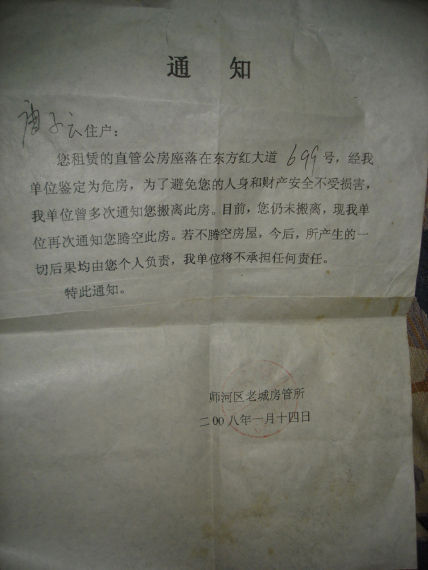 通知
唐子云住户：
您租赁的直管公房座落在东方红大道699号，经我
单位鉴定为危房，为了避免您的人身和财产安全不受损害，
我单位曾多次通知您搬离此房。目前，您仍未搬离，现我单
位再次通知您腾空此房。若不腾空房屋，今后，所产生的一
切后果均由您个人负责，我单位将不承担任何责任。
特此通知。
师河区老城房管所
二00八年一月十四日